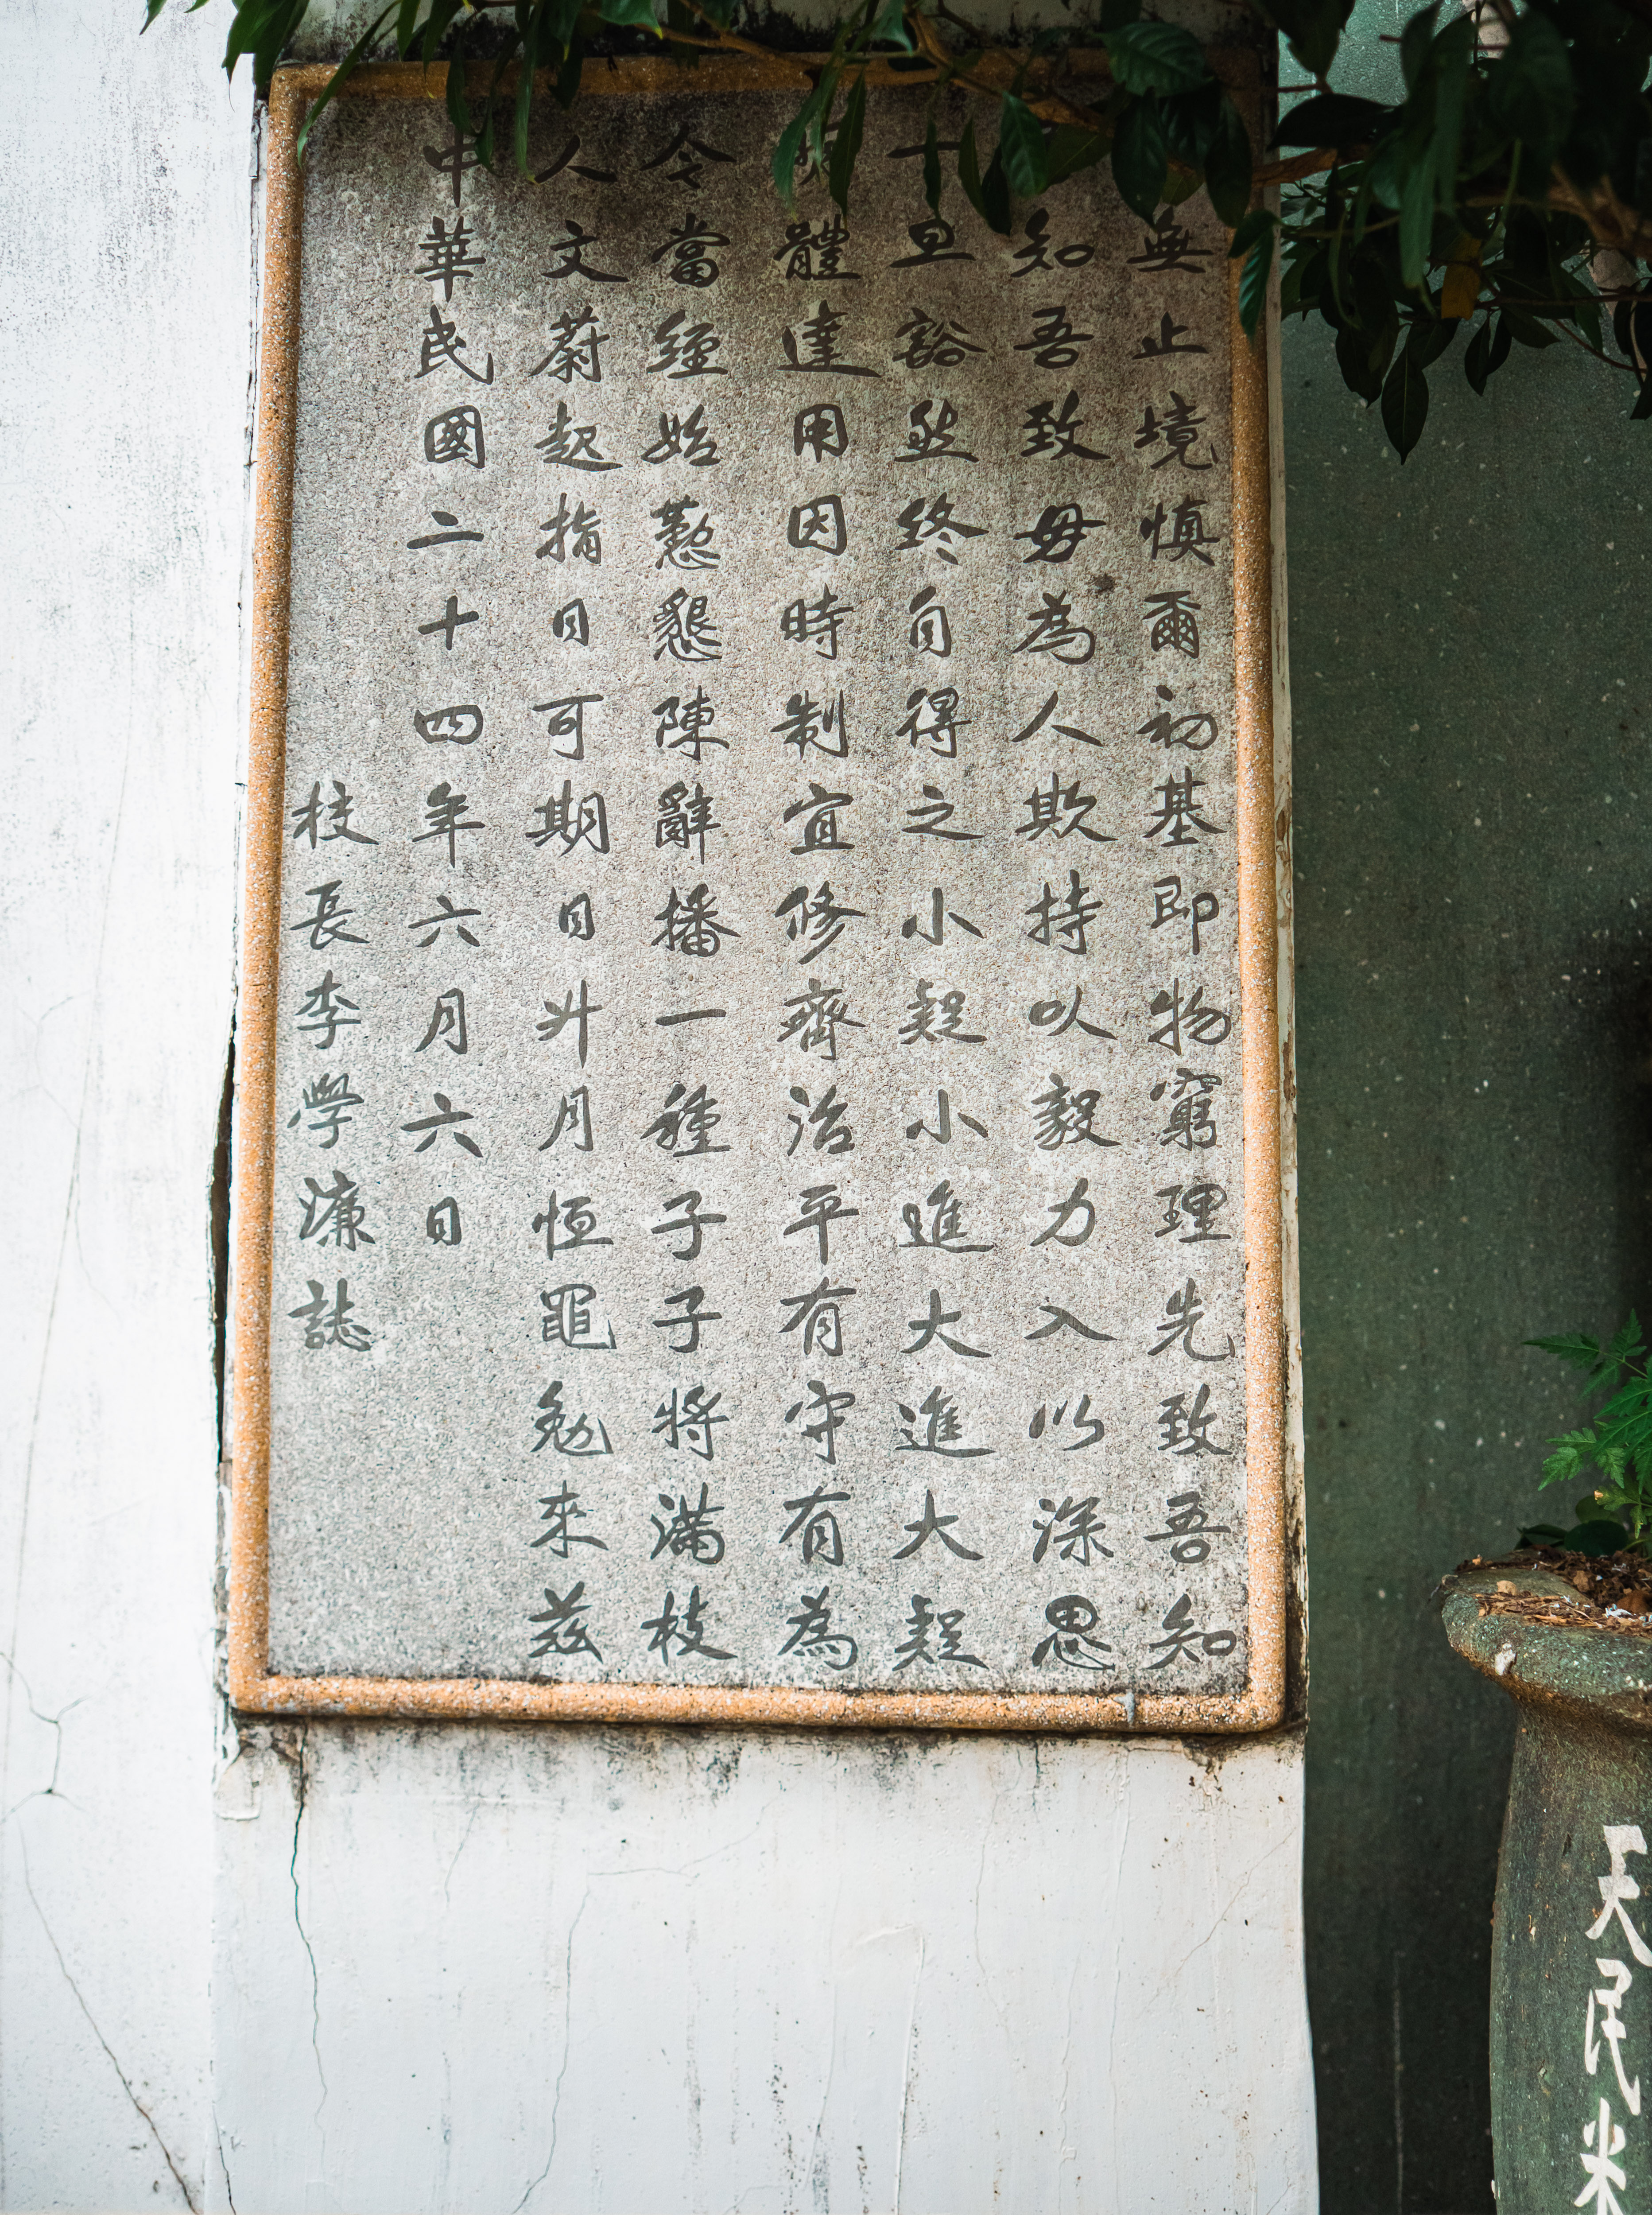 無止境慎爾初基即物窮理先致吾知
知吾致毋為人欺持以毅力入以深思
十旦豁然終自得之小疑小進大進大疑
體達用因時制宜修齊治平有守有為
令當經始懃懇陳辭播一種子子將滿枝
人文蔚起指日可期日升月恒黽勉來茲
中華民國二十四年六月六日
校長李學濂誌
天民米